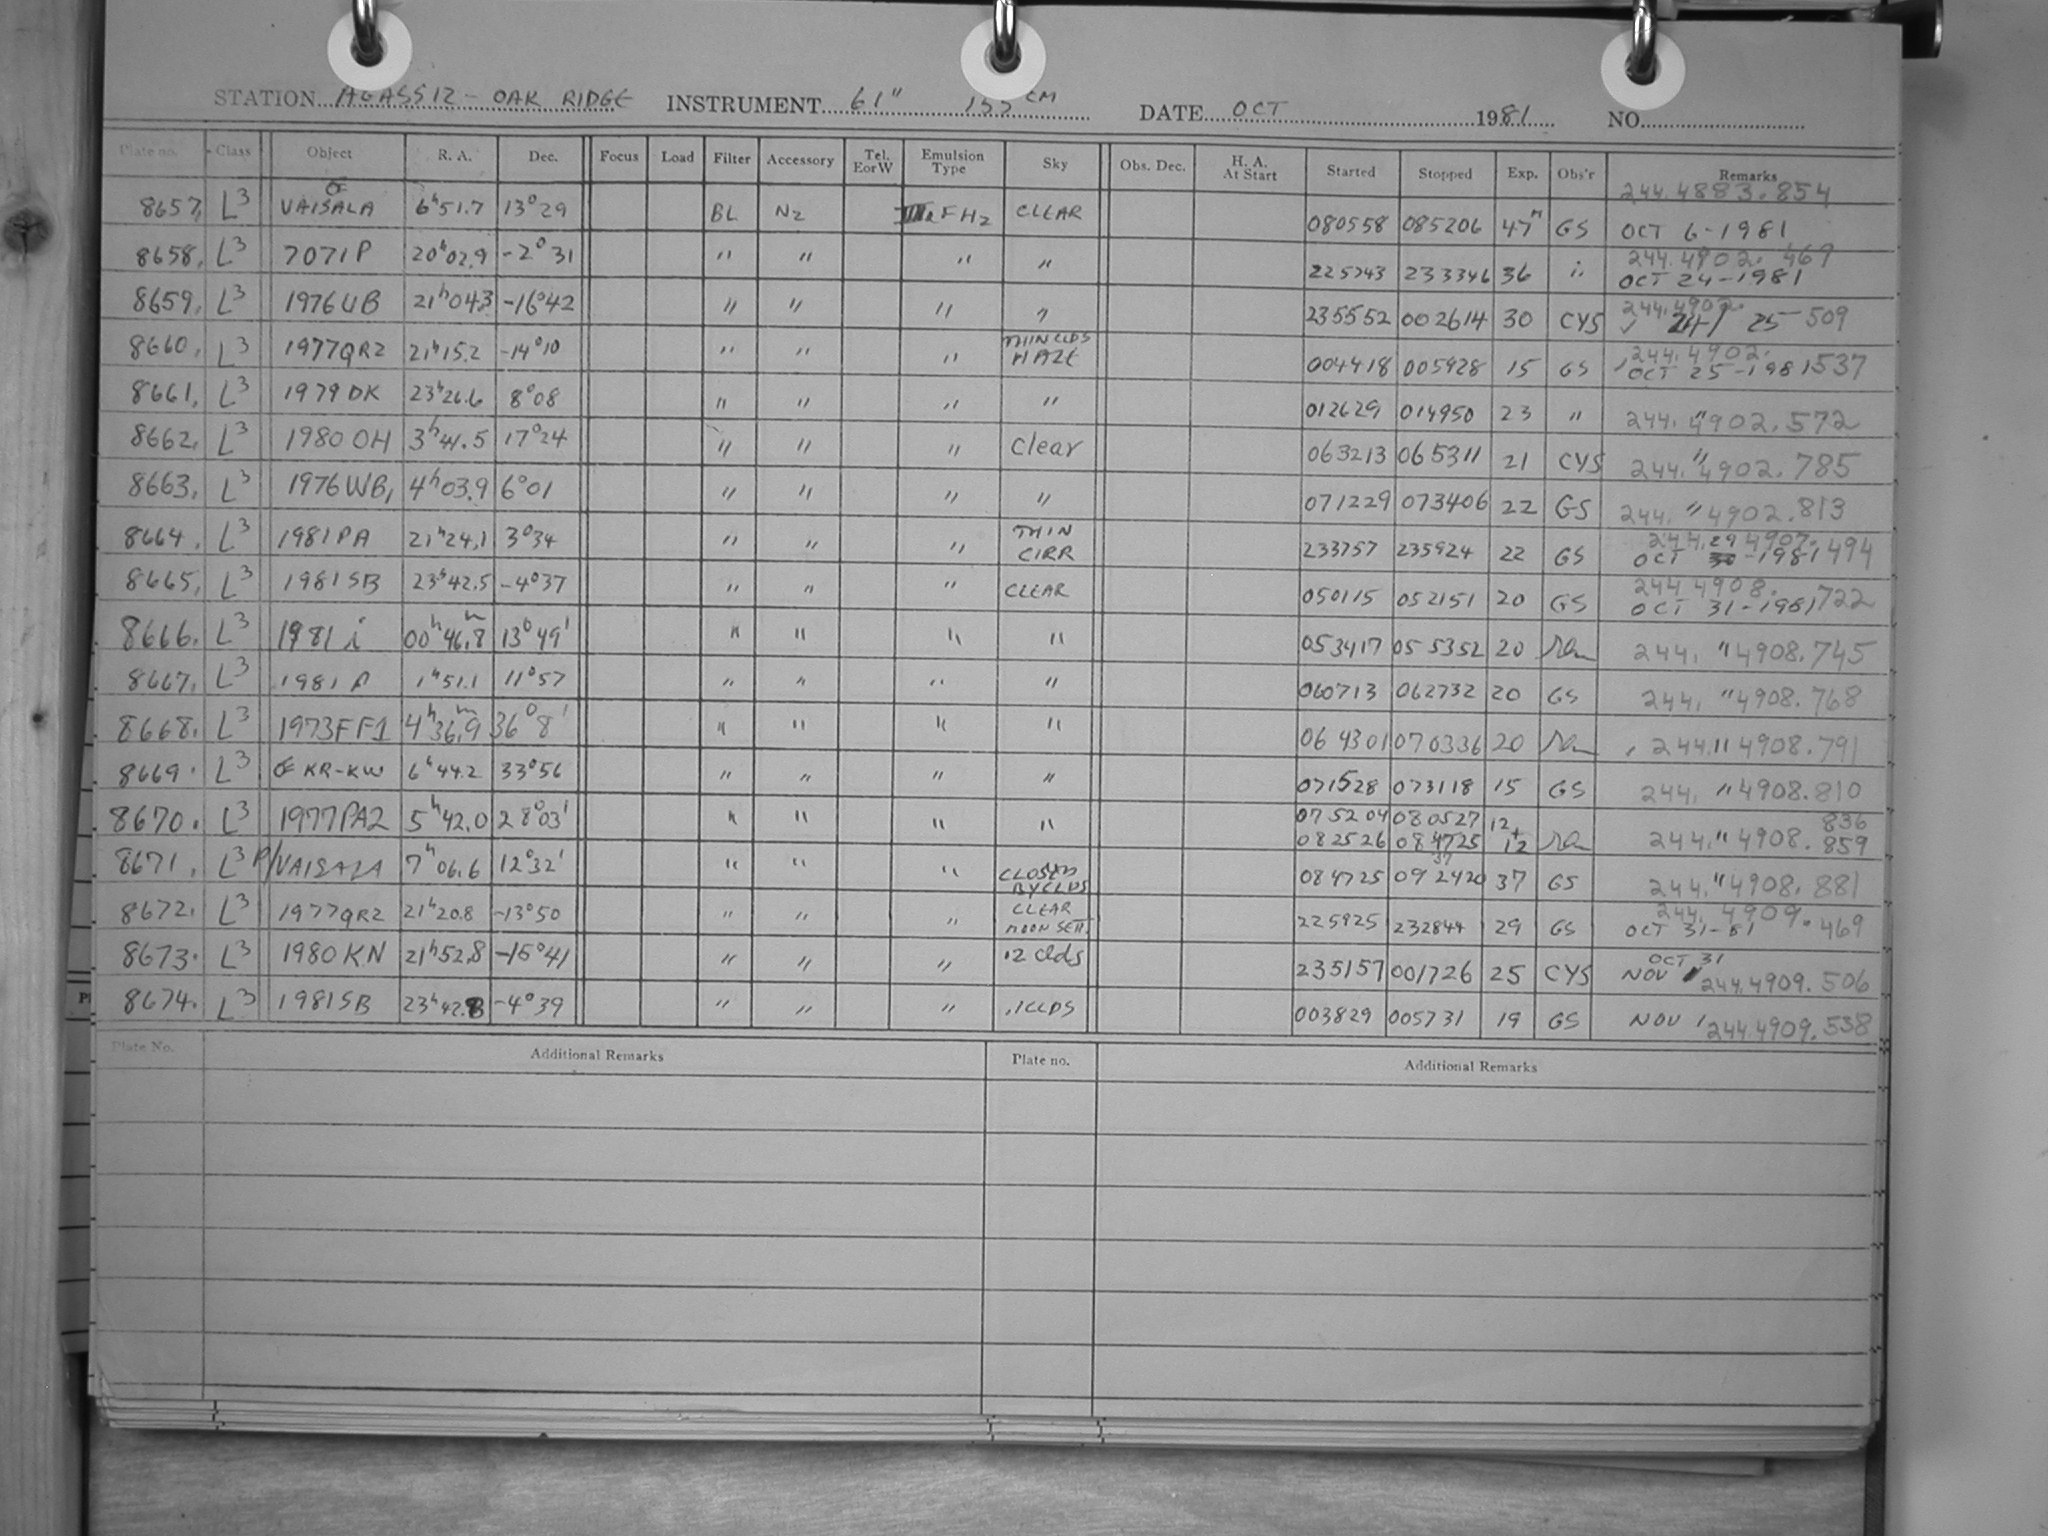 STATION AGASSIZ - OAK RIDGE INSTRUMENT 61" 155 CM DATE OCT 1981 NO.
Plate no. Class Object R. A. Dec. Focus Load Filter Accessory Tel. E or W Emulsion Type Sky Obs. Dec. H. A. At Start Started Stopped Exp. Obs'r Remarks
8657, L3 VAISALA 6h51.7 13°29 BL N2 FH2 CLEAR 080558 085206 47m GS 244.4883.854 OCT 6-1981
8658, L3 7071P 20h02.9 -2°31 " " " " 225743 233346 36 " 244.4902.469 OCT 24-1981
8659, L3 1976UB 21h04.3 -16°42 " " " " 235552 002614 30 CYS 244.4902.509 25
8660, L3 1977QR2 21h15.2 -14°10 " " " THIN CLDS HAZE 004418 005928 15 GS 244.4902.537 OCT 25-1981
8661, L3 1979DK 23h26.6 8°08 " " " " 012629 014950 23 " " 244.4902.572
8662, L3 1980 OH 3h41.5 17°24 " " " Clear 063213 065311 21 CYS " 244.4902.785
8663, L3 1976WB, 4h03.9 6°01 " " " " 071229 073406 22 GS 244. " 4902.813
8664, L3 1981PA 21h24.1 3°34 " " " THIN CIRR 233757 235924 22 GS 244.4907.494 OCT 29 30-1981
8665, L3 1981SB 23h42.5 -4°37 " " " CLEAR 050115 052151 20 GS 244 4908.722 OCT 31-1981
8666. L3 1981 i 00h46.8m 13°49' " " " " 053417 055352 20 244. " 4908.745
8667, L3 1981 1h51.1 11°57 " " " " 060713 062732 20 GS 244. " 4908.768
8668. L3 1973FF1 4h36.9m 36°8' " " " " 064301 070336 20 244. " 4908.791
8669. L3 KR-KW 6h44.2 33°56 " " " " 071528 073118 15 GS 244. " 4908.810
8670. L3 1977PA2 5h42.0 28°03' " " " " 075204 080527 12+ 836
082526 084725 12 244. " 4908.859
8671, L3 P/VAISALA 7h06.6 12°32' " " " CLOSED BY CLDS 084725 092420 37 GS 244. " 4908.881
8672. L3 1977QR2 21h20.8 -13°50 " " " CLEAR MOON SET 225925 232844 29 GS 244. 4909.469 OCT 31-81
8673. L3 1980 KN 21h52.8 -15°41 " " " .2 Clds 235157 001726 25 CYS OCT 31 NOV 244.4909.506
8674. L3 1981SB 23h42.8 -4°39 " " " .1CLDS 003829 005731 19 GS NOV 1 244.4909.538
Plate No. Additional Remarks Plate no. Additional Remarks